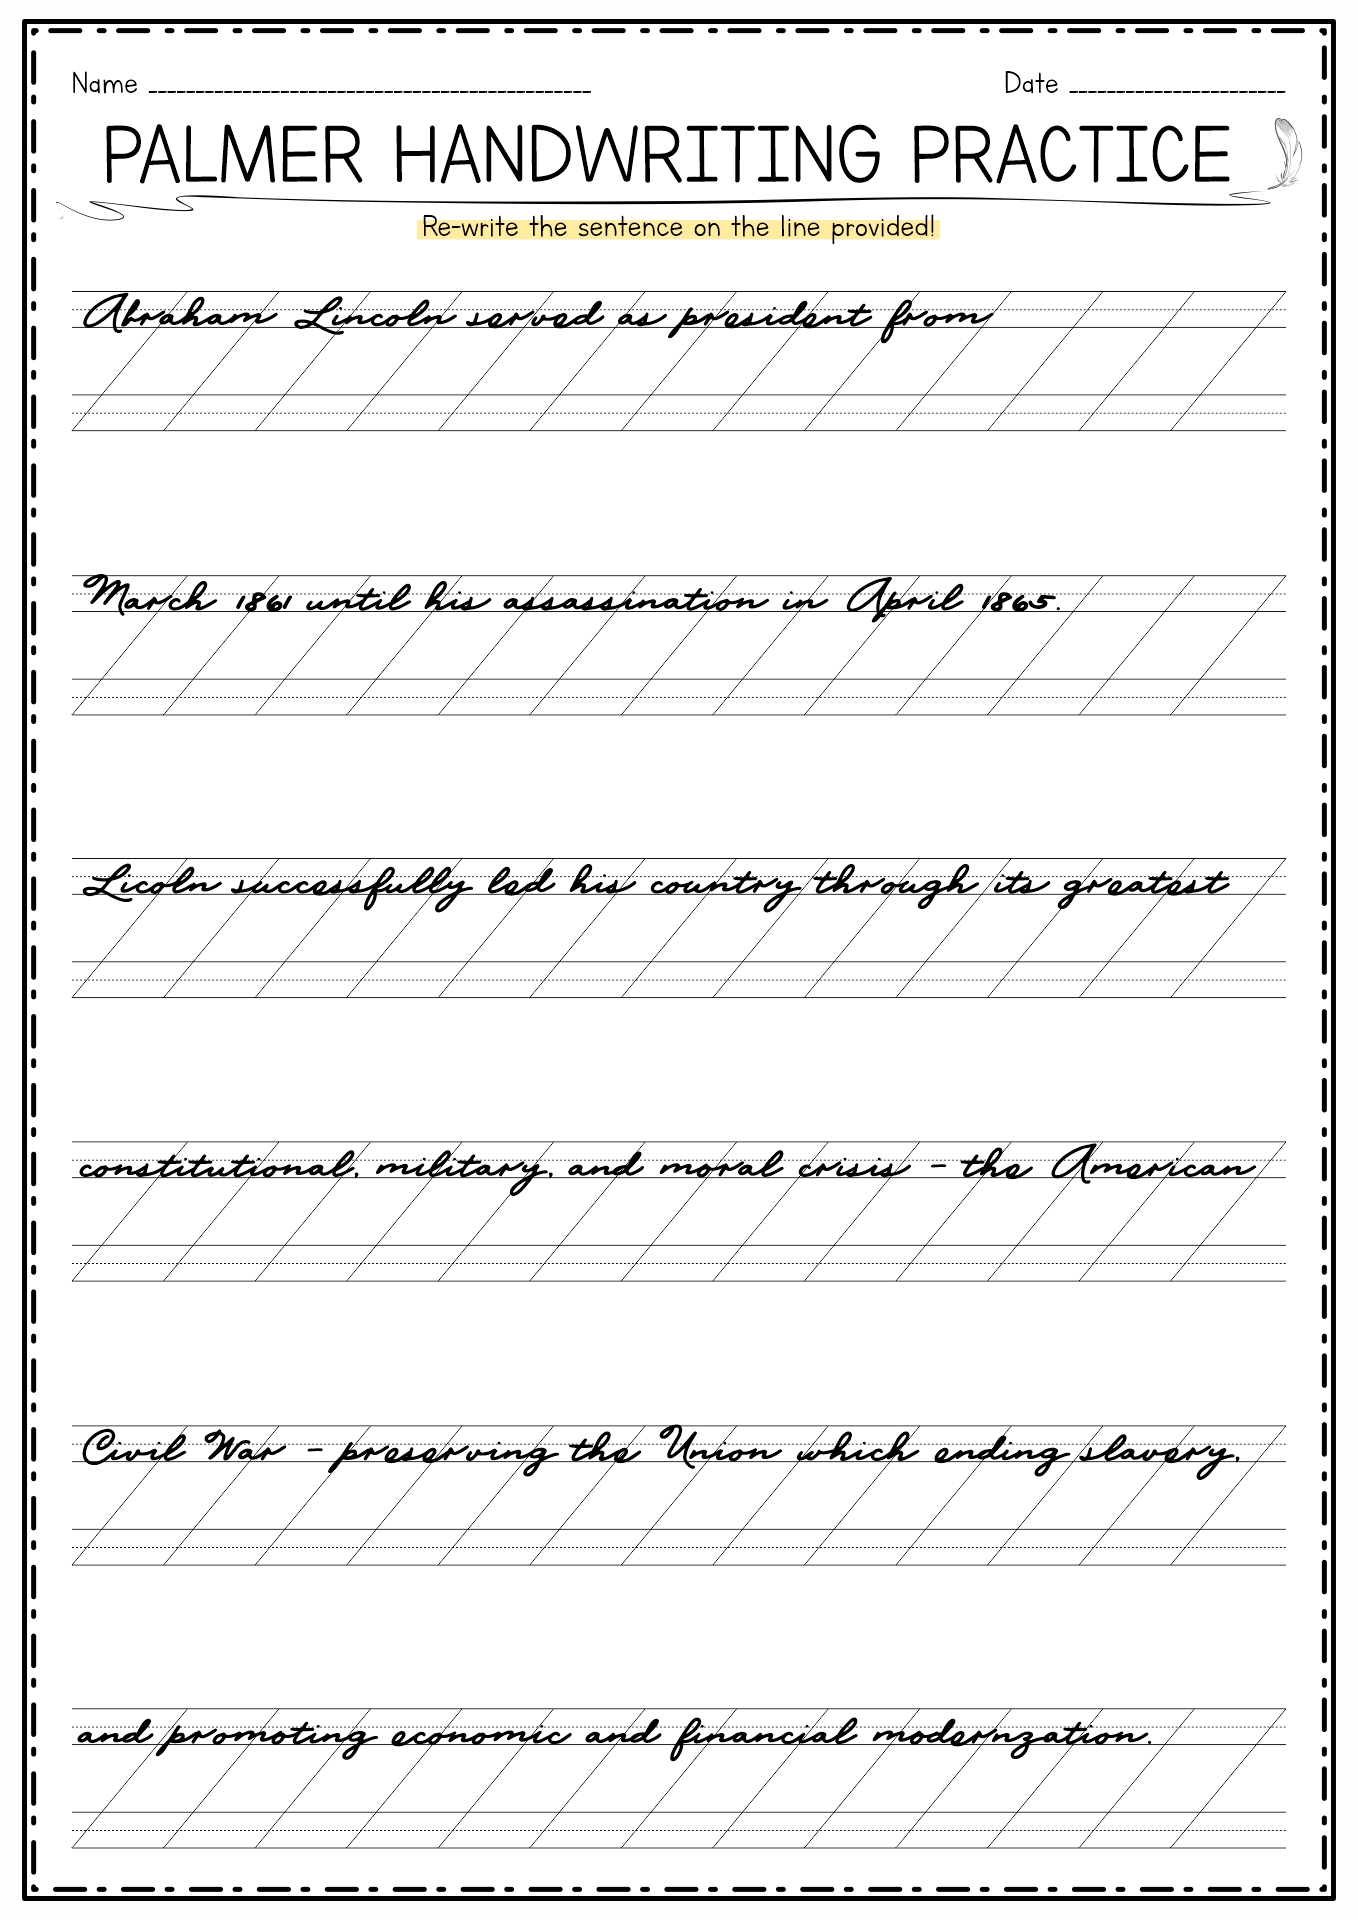 Name Date
PALMER HANDWRITING PRACTICE
Re-write the sentence on the line provided!
Abraham Lincoln served as president from
March 1861 until his assassination in April 1865.
Licoln successfully led his country through its greatest
constitutional, military, and moral crisis - the American
Civil War - preserving the Union which ending slavery,
and promoting economic and financial modernzation.